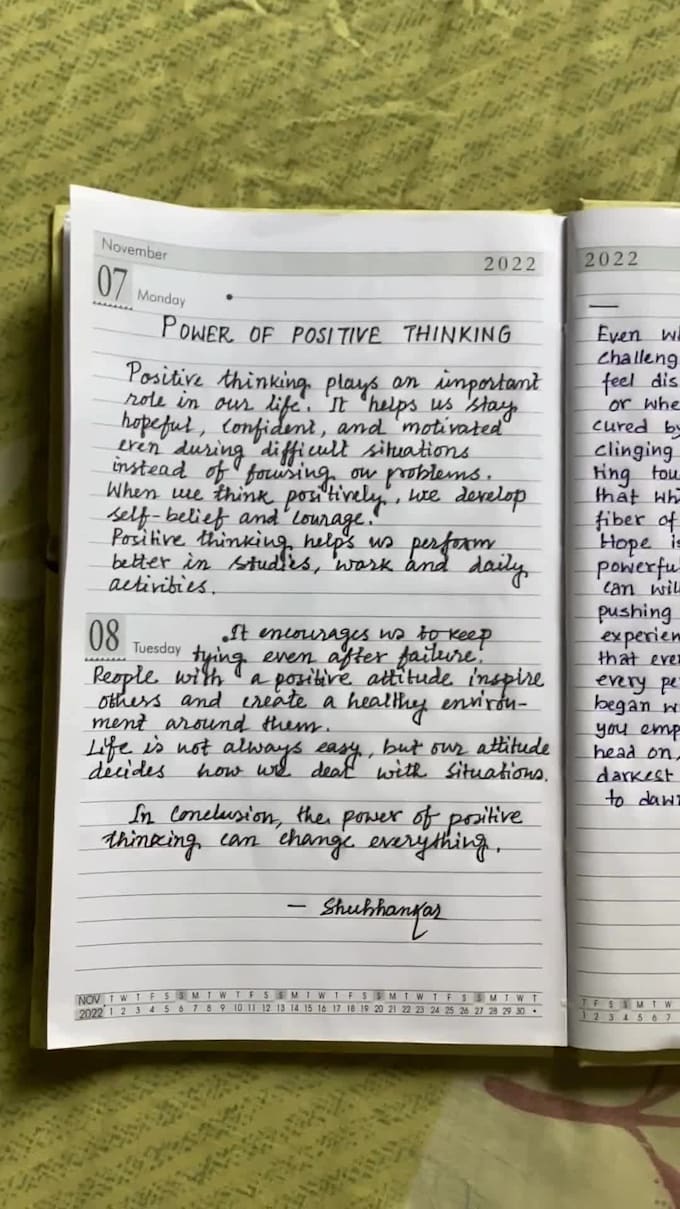 November 2022
07 Monday
POWER OF POSITIVE THINKING
Positive thinking plays an important
role in our life. It helps us stay
hopeful, confident, and motivated
even during difficult situations
instead of focusing on problems.
When we think positively, we develop
self-belief and courage.
Positive thinking helps us perform
better in studies, work and daily
activities.
08 Tuesday
It encourages us to keep
tying even after failure.
People with a positive attitude inspire
others and create a healthy environ-
ment around them.
Life is not always easy, but our attitude
decides how we deal with situations.
In conclusion, the power of positive
thinking can change everything.
— Shubhankar
NOV T W T F S S M T W T F S S M T W T F S S M T W T F S S M T W T
2022 1 2 3 4 5 6 7 8 9 10 11 12 13 14 15 16 17 18 19 20 21 22 23 24 25 26 27 28 29 30 •
2022
Even
challeng
feel dis
or whe
cured by
clinging
ring tou
that
fiber of
Hope is
powerfu
can wil
pushing
experien
that eve
every pe
began w
you emp
head on,
darkest
to daw
T F S S M T W
1 2 3 4 5 6 7